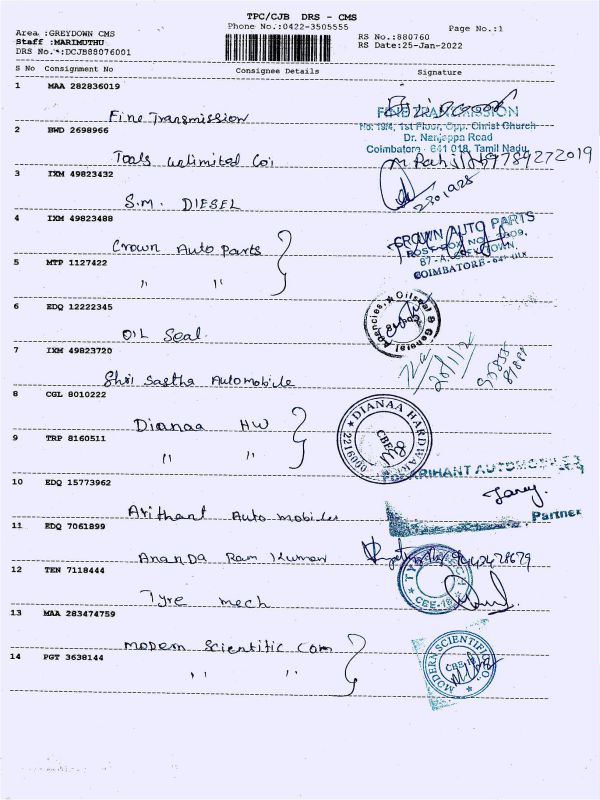 TPC/CJB DRS - CMS
Phone No.:0422-3505555
Page No.:1
Area :GREYDOWN CMS
Staff :MARIMUTHU
DRS No.:DCJB88076001
RS No.:880760
RS Date:25-Jan-2022
S No Consignment No Consignee Details Signature
1 MAA 282836019
Fine Transmission
FINE TRANSMISSION
No: 19/4, 1st Floor, Opp. Christ Church
Dr. Nanjappa Road
Coimbatore - 641 018, Tamil Nadu
2 BWD 2698966
Tools unlimited Coi
9789272019
3 IXM 49823432
S.M. DIESEL
4 IXM 49823488
Crown Auto Parts
CROWN AUTO PARTS
POST BOX NO.
87-A, GREYTOWN,
COIMBATORE-641 018
5 MTP 1127422
" "
6 EDQ 12222345
OIL Seal
Oilseal & General Agencies
7 IXM 49823720
Shri Sastha Automobile
8 CGL 8010222
Dianaa HW
DIANAA HARDWARE
CBE
9 TRP 8160511
" "
10 EDQ 15773962
Arithant Automobiles
ARIHANT AUTOMOBILES
Partner
11 EDQ 7061899
Ananda Ram Kumar
12 TEN 7118444
Tyre mech
CBE-18
13 MAA 283474759
Modern Scientific Com
MODERN SCIENTIFIC CO.
CBE-18
14 PGT 3638144
" "